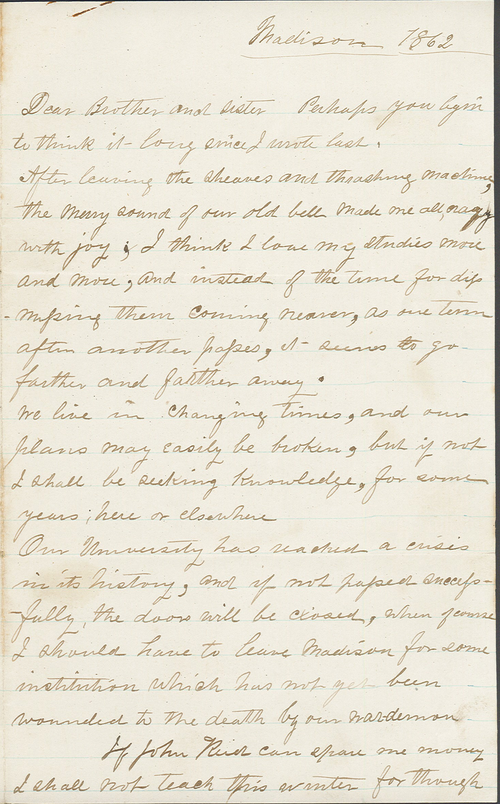 Madison 1862
Dear Brother and sister Perhaps you begin
to think it long since I wrote last.
After leaving the sheaves and thrashing machine,
the merry sound of our old bell made me all
with joy; I think I love my studies more
and more, and instead of the time for dis
-missing them coming nearer, as one term
after another passes, it seems to go
farther and farther away.
We live in changing times, and our
plans may easily be broken, but if not
I shall be seeking knowledge, for some
years, here or elsewhere
Our University has reached a crisis
in its history, and if not passed success-
-fully, the doors will be closed, when of course
I should have to leave Madison for some
institution which has not yet been
wounded to the death by our war demon
If John Reid can spare me money
I shall not teach this winter for though